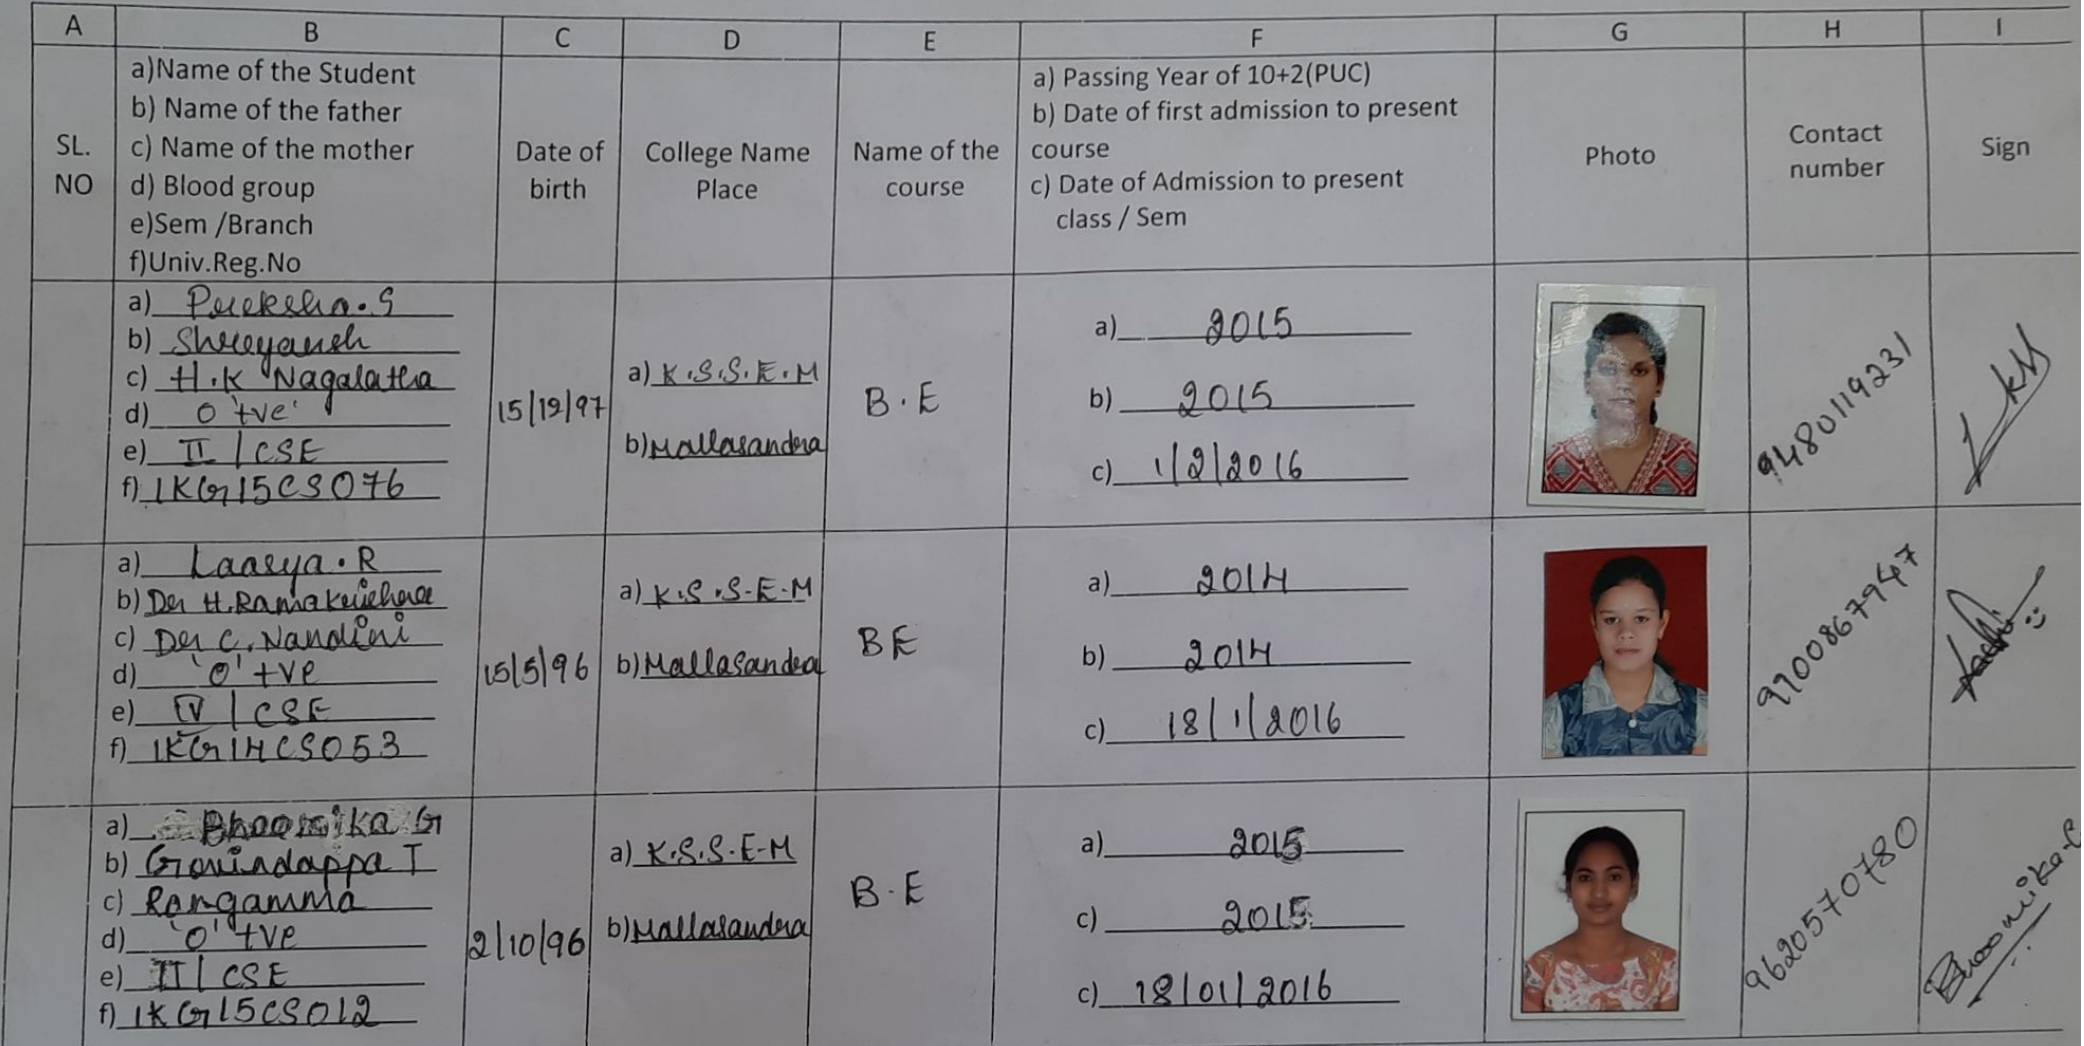 A B C D E F G H I
SL.
NO
a)Name of the Student
b) Name of the father
c) Name of the mother
d) Blood group
e)Sem /Branch
f)Univ.Reg.No
Date of
birth
College Name
Place
Name of the
course
a) Passing Year of 10+2(PUC)
b) Date of first admission to present
course
c) Date of Admission to present
class / Sem
Photo
Contact
number
Sign
a) Preksha.S
b) Shreyansh
c) H.K Nagalatha
d) O +ve
e) II / CSE
f) 1KG15CS076
15/12/97
a) K.S.S.E.M
b) Mallasandra
B.E
a) 2015
b) 2015
c) 1/2/2016
9480119231
a) Laasya.R
b) Dr H.Ramakrishna
c) Dr C.Nandini
d) 'O' +ve
e) IV / CSE
f) 1KG14CS053
15/5/96
a) K.S.S.E.M
b) Mallasandra
BE
a) 2014
b) 2014
c) 18/1/2016
9700867947
a) Bhoomika G
b) Govindappa T
c) Rangamma
d) 'O' +ve
e) II / CSE
f) 1KG15CS012
2/10/96
a) K.S.S.E.M
b) Mallasandra
B.E
a) 2015
c) 2015
c) 18/01/2016
9620570780
Bhoomika.G